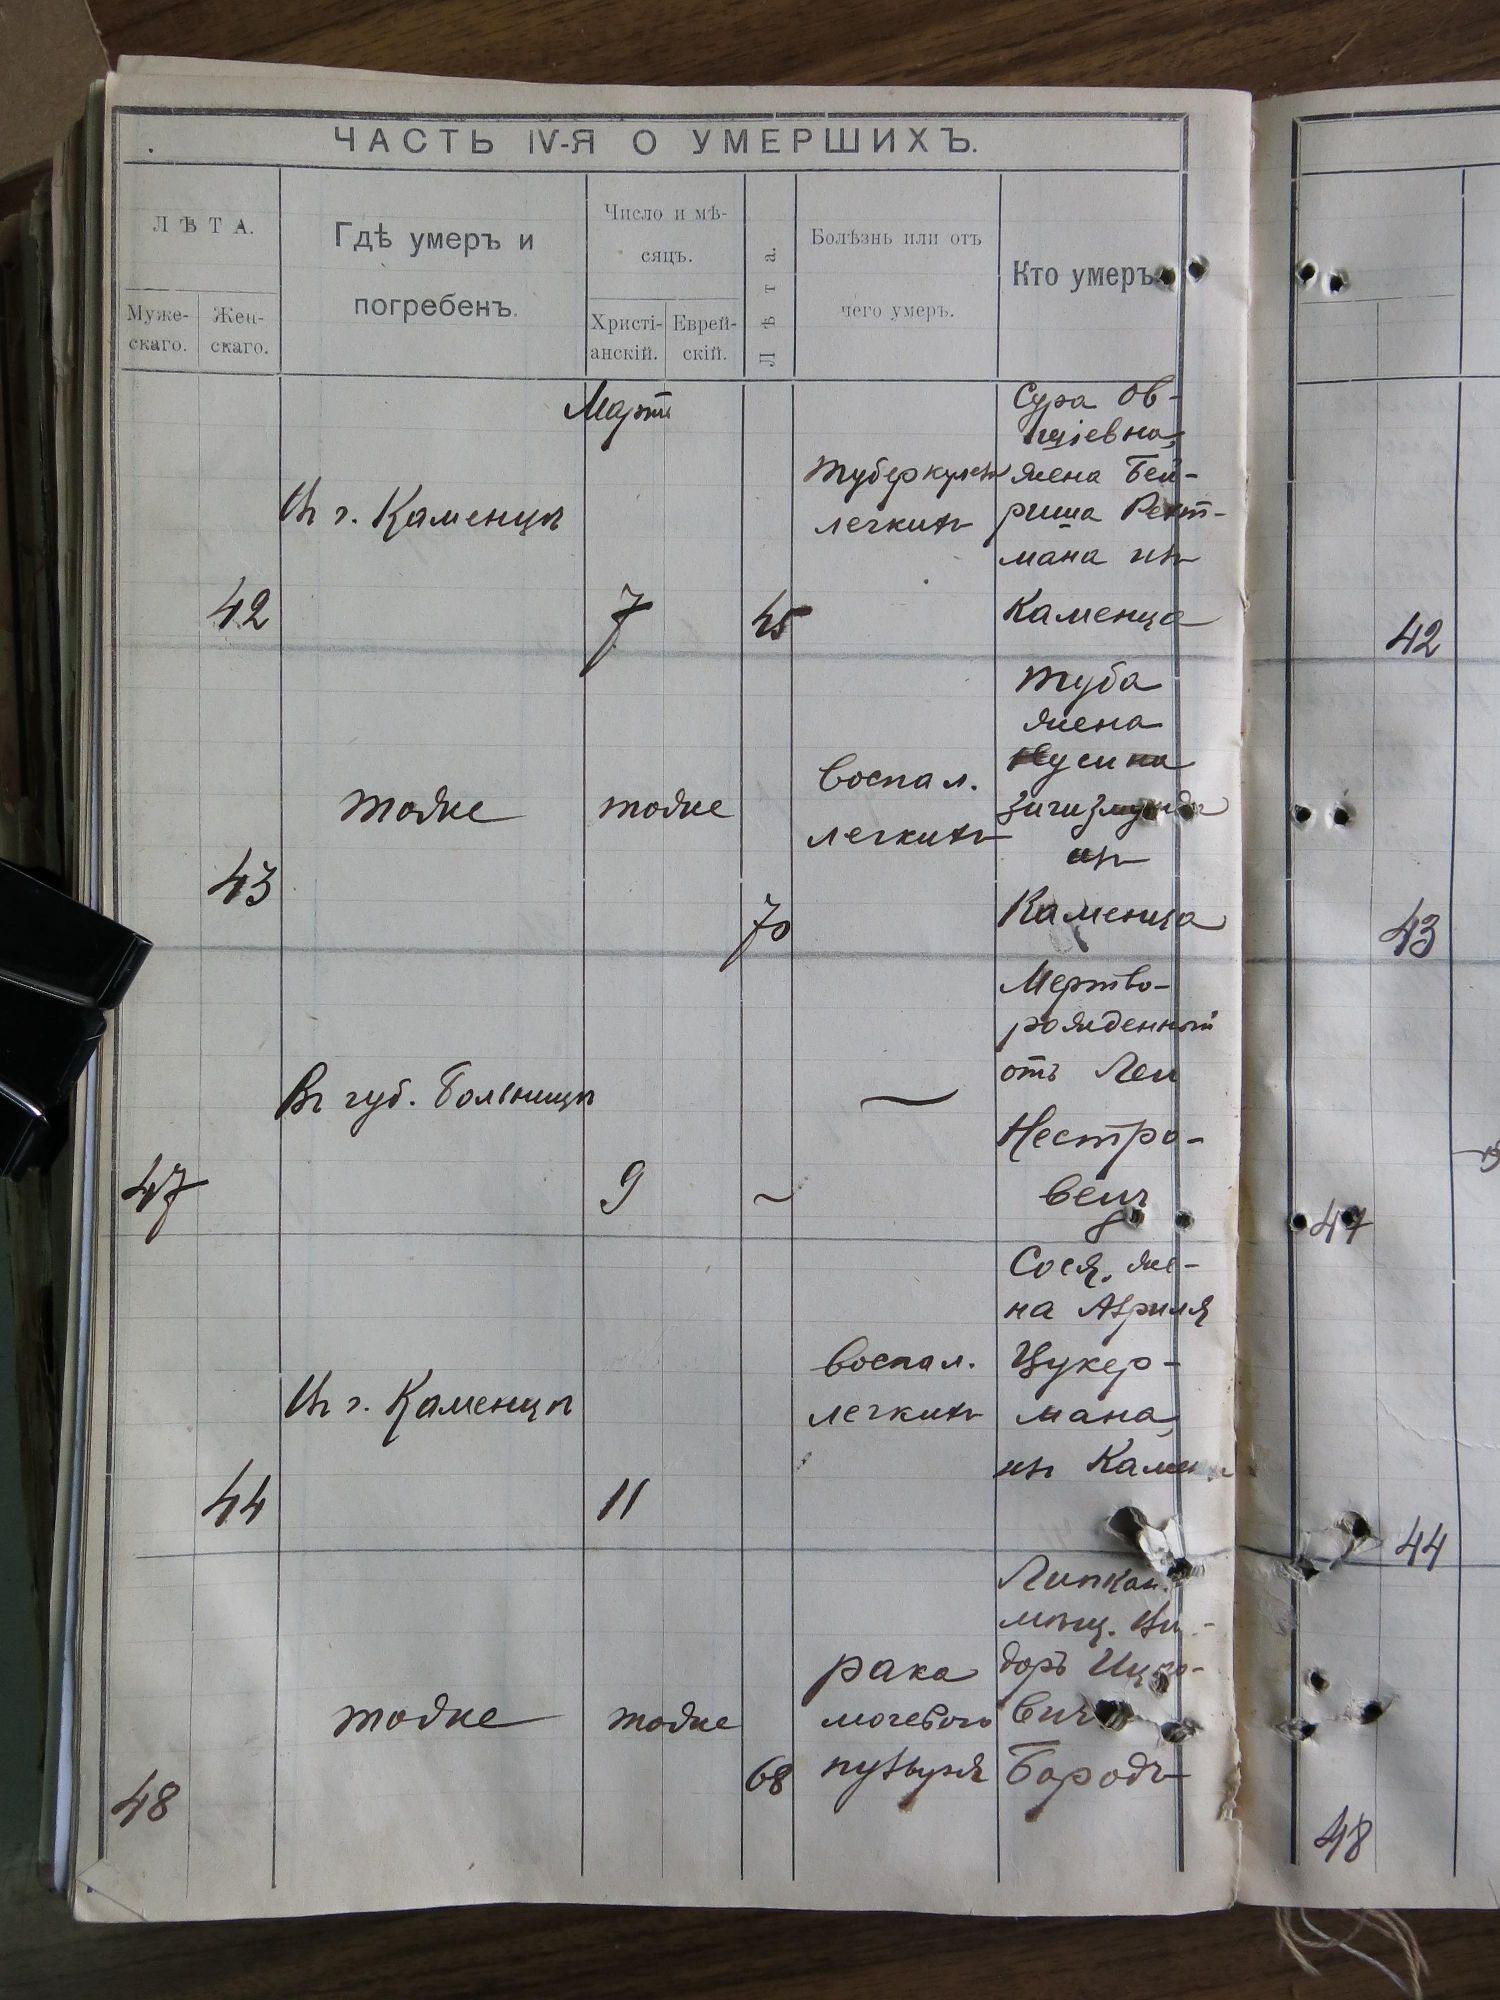 ЧАСТЬ IV-Я О УМЕРШИХЪ.
ЛѢТА.
Муже-
скаго.
Жен-
скаго.
Гдѣ умеръ и
погребенъ.
Число и мѣ-
сяцъ.
Христі-
анскій.
Еврей-
скій.
Лѣта.
Болѣзнь или отъ
чего умеръ.
Кто умеръ.
42
г. Каменцѣ
Мартъ
7
45
туберкулезъ
легкихъ
Сура Ов-
шіевна,
жена Бей-
риша
мана изъ
Каменца
42
43
тоже
тоже
70
воспал.
легкихъ
Туба
жена
Зигизмунда
изъ
Каменца
43
47
Въ губ. Больницѣ
9
~
—
Мертво-
рожденный
отъ Леи
Нестро-
47
44
г. Каменцѣ
11
воспал.
легкихъ
Сося, же-
на Азриля
Цукер-
мана,
изъ
44
48
тоже
тоже
68
рака
мочевого
пузыря
Липкан.
мѣщ.
вичъ
Бородъ
48